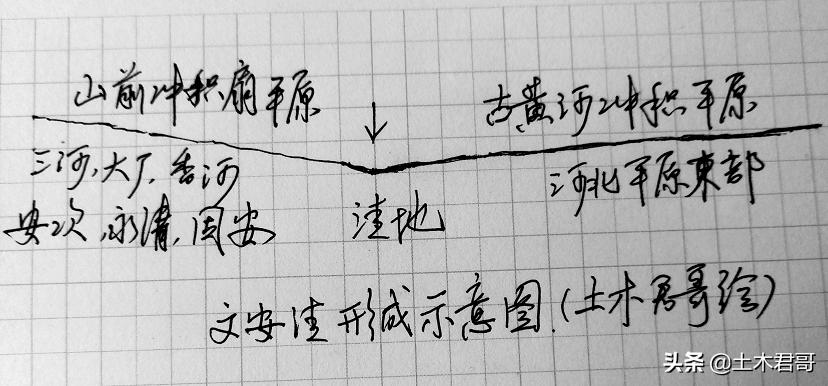 山前冲积扇平原
古黄河冲积平原
三河,大厂,香河
河北平原東部
安次,永清,固安
洼地
文安洼形成示意图.(土木君哥绘)
头条 @土木君哥